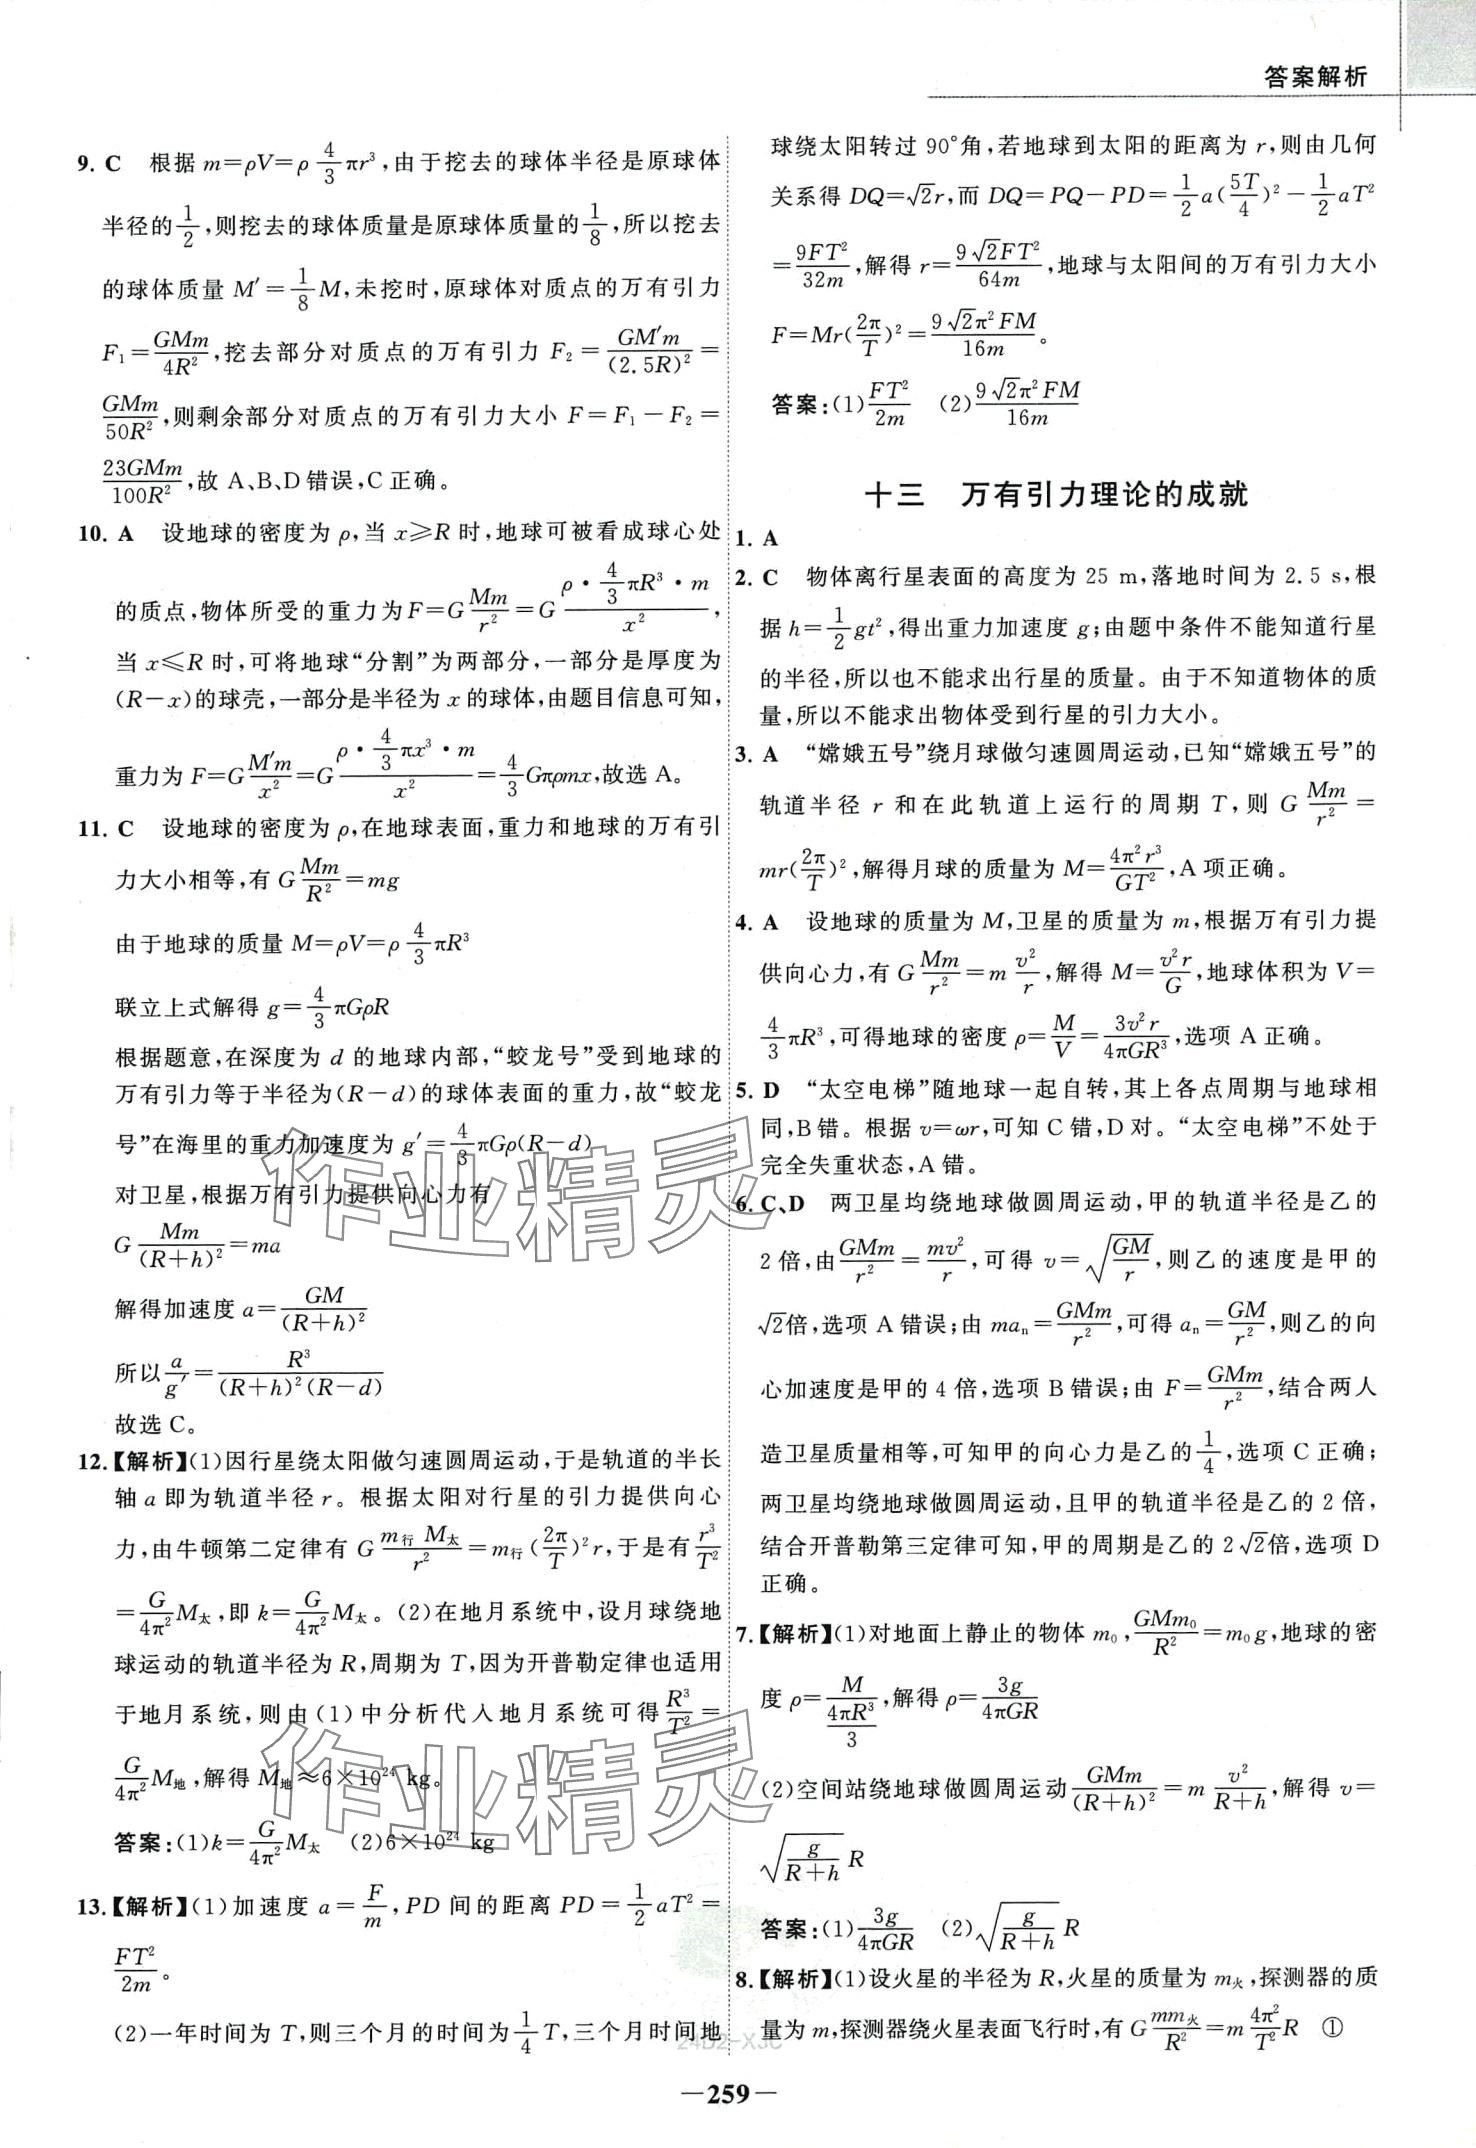 答案解析
9. C 根据 m=ρV=ρ 4/3 πr³,由于挖去的球体半径是原球体
半径的 1/2,则挖去的球体质量是原球体质量的 1/8,所以挖去
的球体质量 M′=1/8 M,未挖时,原球体对质点的万有引力
F₁=GMm/4R²,挖去部分对质点的万有引力 F₂=GM′m/(2.5R)²=
GMm/50R²,则剩余部分对质点的万有引力大小 F=F₁-F₂=
23GMm/100R²,故 A、B、D 错误,C 正确。
10. A 设地球的密度为 ρ,当 x≥R 时,地球可被看成球心处
的质点,物体所受的重力为F=G Mm/r²=G (ρ·4/3 πR³·m)/x²,
当 x≤R 时,可将地球“分割”为两部分,一部分是厚度为
(R-x)的球壳,一部分是半径为 x 的球体,由题目信息可知,
重力为 F=G M′m/x²=G (ρ·4/3 πx³·m)/x²=4/3 Gπρmx,故选 A。
11. C 设地球的密度为 ρ,在地球表面,重力和地球的万有引
力大小相等,有 G Mm/R²=mg
由于地球的质量 M=ρV=ρ 4/3 πR³
联立上式解得 g=4/3 πGρR
根据题意,在深度为 d 的地球内部,“蛟龙号”受到地球的
万有引力等于半径为(R-d)的球体表面的重力,故“蛟龙
号”在海里的重力加速度为 g′=4/3 πGρ(R-d)
对卫星,根据万有引力提供向心力有
G Mm/(R+h)²=ma
解得加速度 a=GM/(R+h)²
所以 a/g′=R³/(R+h)²(R-d)
故选 C。
12.【解析】(1)因行星绕太阳做匀速圆周运动,于是轨道的半长
轴 a 即为轨道半径 r。根据太阳对行星的引力提供向心
力,由牛顿第二定律有 G m行 M太/r²=m行(2π/T)²r,于是有 r³/T²
=G/4π² M太,即 k=G/4π² M太。(2)在地月系统中,设月球绕地
球运动的轨道半径为 R,周期为 T,因为开普勒定律也适用
于地月系统,则由(1)中分析代入地月系统可得 R³/T²=
G/4π² M地,解得 M地≈6×10²⁴ kg。
答案:(1)k=G/4π² M太 (2)6×10²⁴ kg
13.【解析】(1)加速度 a=F/m,PD 间的距离 PD=1/2 aT²=
FT²/2m。
(2)一年时间为 T,则三个月的时间为 1/4 T,三个月时间地
球绕太阳转过 90°角,若地球到太阳的距离为 r,则由几何
关系得 DQ=√2r,而 DQ=PQ-PD=1/2 a(5T/4)²-1/2 aT²
=9FT²/32m,解得 r=9√2FT²/64m,地球与太阳间的万有引力大小
F=Mr(2π/T)²=9√2π²FM/16m。
答案:(1)FT²/2m (2)9√2π²FM/16m
十三 万有引力理论的成就
1. A
2. C 物体离行星表面的高度为 25 m,落地时间为 2.5 s,根
据 h=1/2 gt²,得出重力加速度 g;由题中条件不能知道行星
的半径,所以也不能求出行星的质量。由于不知道物体的质
量,所以不能求出物体受到行星的引力大小。
3. A “嫦娥五号”绕月球做匀速圆周运动,已知“嫦娥五号”的
轨道半径 r 和在此轨道上运行的周期 T,则 G Mm/r²=
mr(2π/T)²,解得月球的质量为 M=4π²r³/GT²,A 项正确。
4. A 设地球的质量为 M,卫星的质量为 m,根据万有引力提
供向心力,有 G Mm/r²=m v²/r,解得 M=v²r/G,地球体积为 V=
4/3 πR³,可得地球的密度 ρ=M/V=3v²r/4πGR³,选项 A 正确。
5. D “太空电梯”随地球一起自转,其上各点周期与地球相
同,B 错。根据 v=ωr,可知 C 错,D 对。“太空电梯”不处于
完全失重状态,A 错。
6. C、D 两卫星均绕地球做圆周运动,甲的轨道半径是乙的
2 倍,由 GMm/r²=mv²/r,可得 v=√(GM/r),则乙的速度是甲的
√2倍,选项 A 错误;由 maₙ=GMm/r²,可得 aₙ=GM/r²,则乙的向
心加速度是甲的 4 倍,选项 B 错误;由 F=GMm/r²,结合两人
造卫星质量相等,可知甲的向心力是乙的 1/4,选项 C 正确;
两卫星均绕地球做圆周运动,且甲的轨道半径是乙的 2 倍,
结合开普勒第三定律可知,甲的周期是乙的 2√2倍,选项 D
正确。
7.【解析】(1)对地面上静止的物体 m₀,GMm₀/R²=m₀g,地球的密
度 ρ=M/(4πR³/3),解得 ρ=3g/4πGR
(2)空间站绕地球做圆周运动 GMm/(R+h)²=m v²/(R+h),解得 v=
√(g/(R+h)) R
答案:(1)3g/4πGR (2)√(g/(R+h)) R
8.【解析】(1)设火星的半径为 R,火星的质量为 m火,探测器的质
量为 m,探测器绕火星表面飞行时,有 G mm火/R²=m 4π²/T² R ①
作业精灵
作业精灵
24D2-XJC
—259—